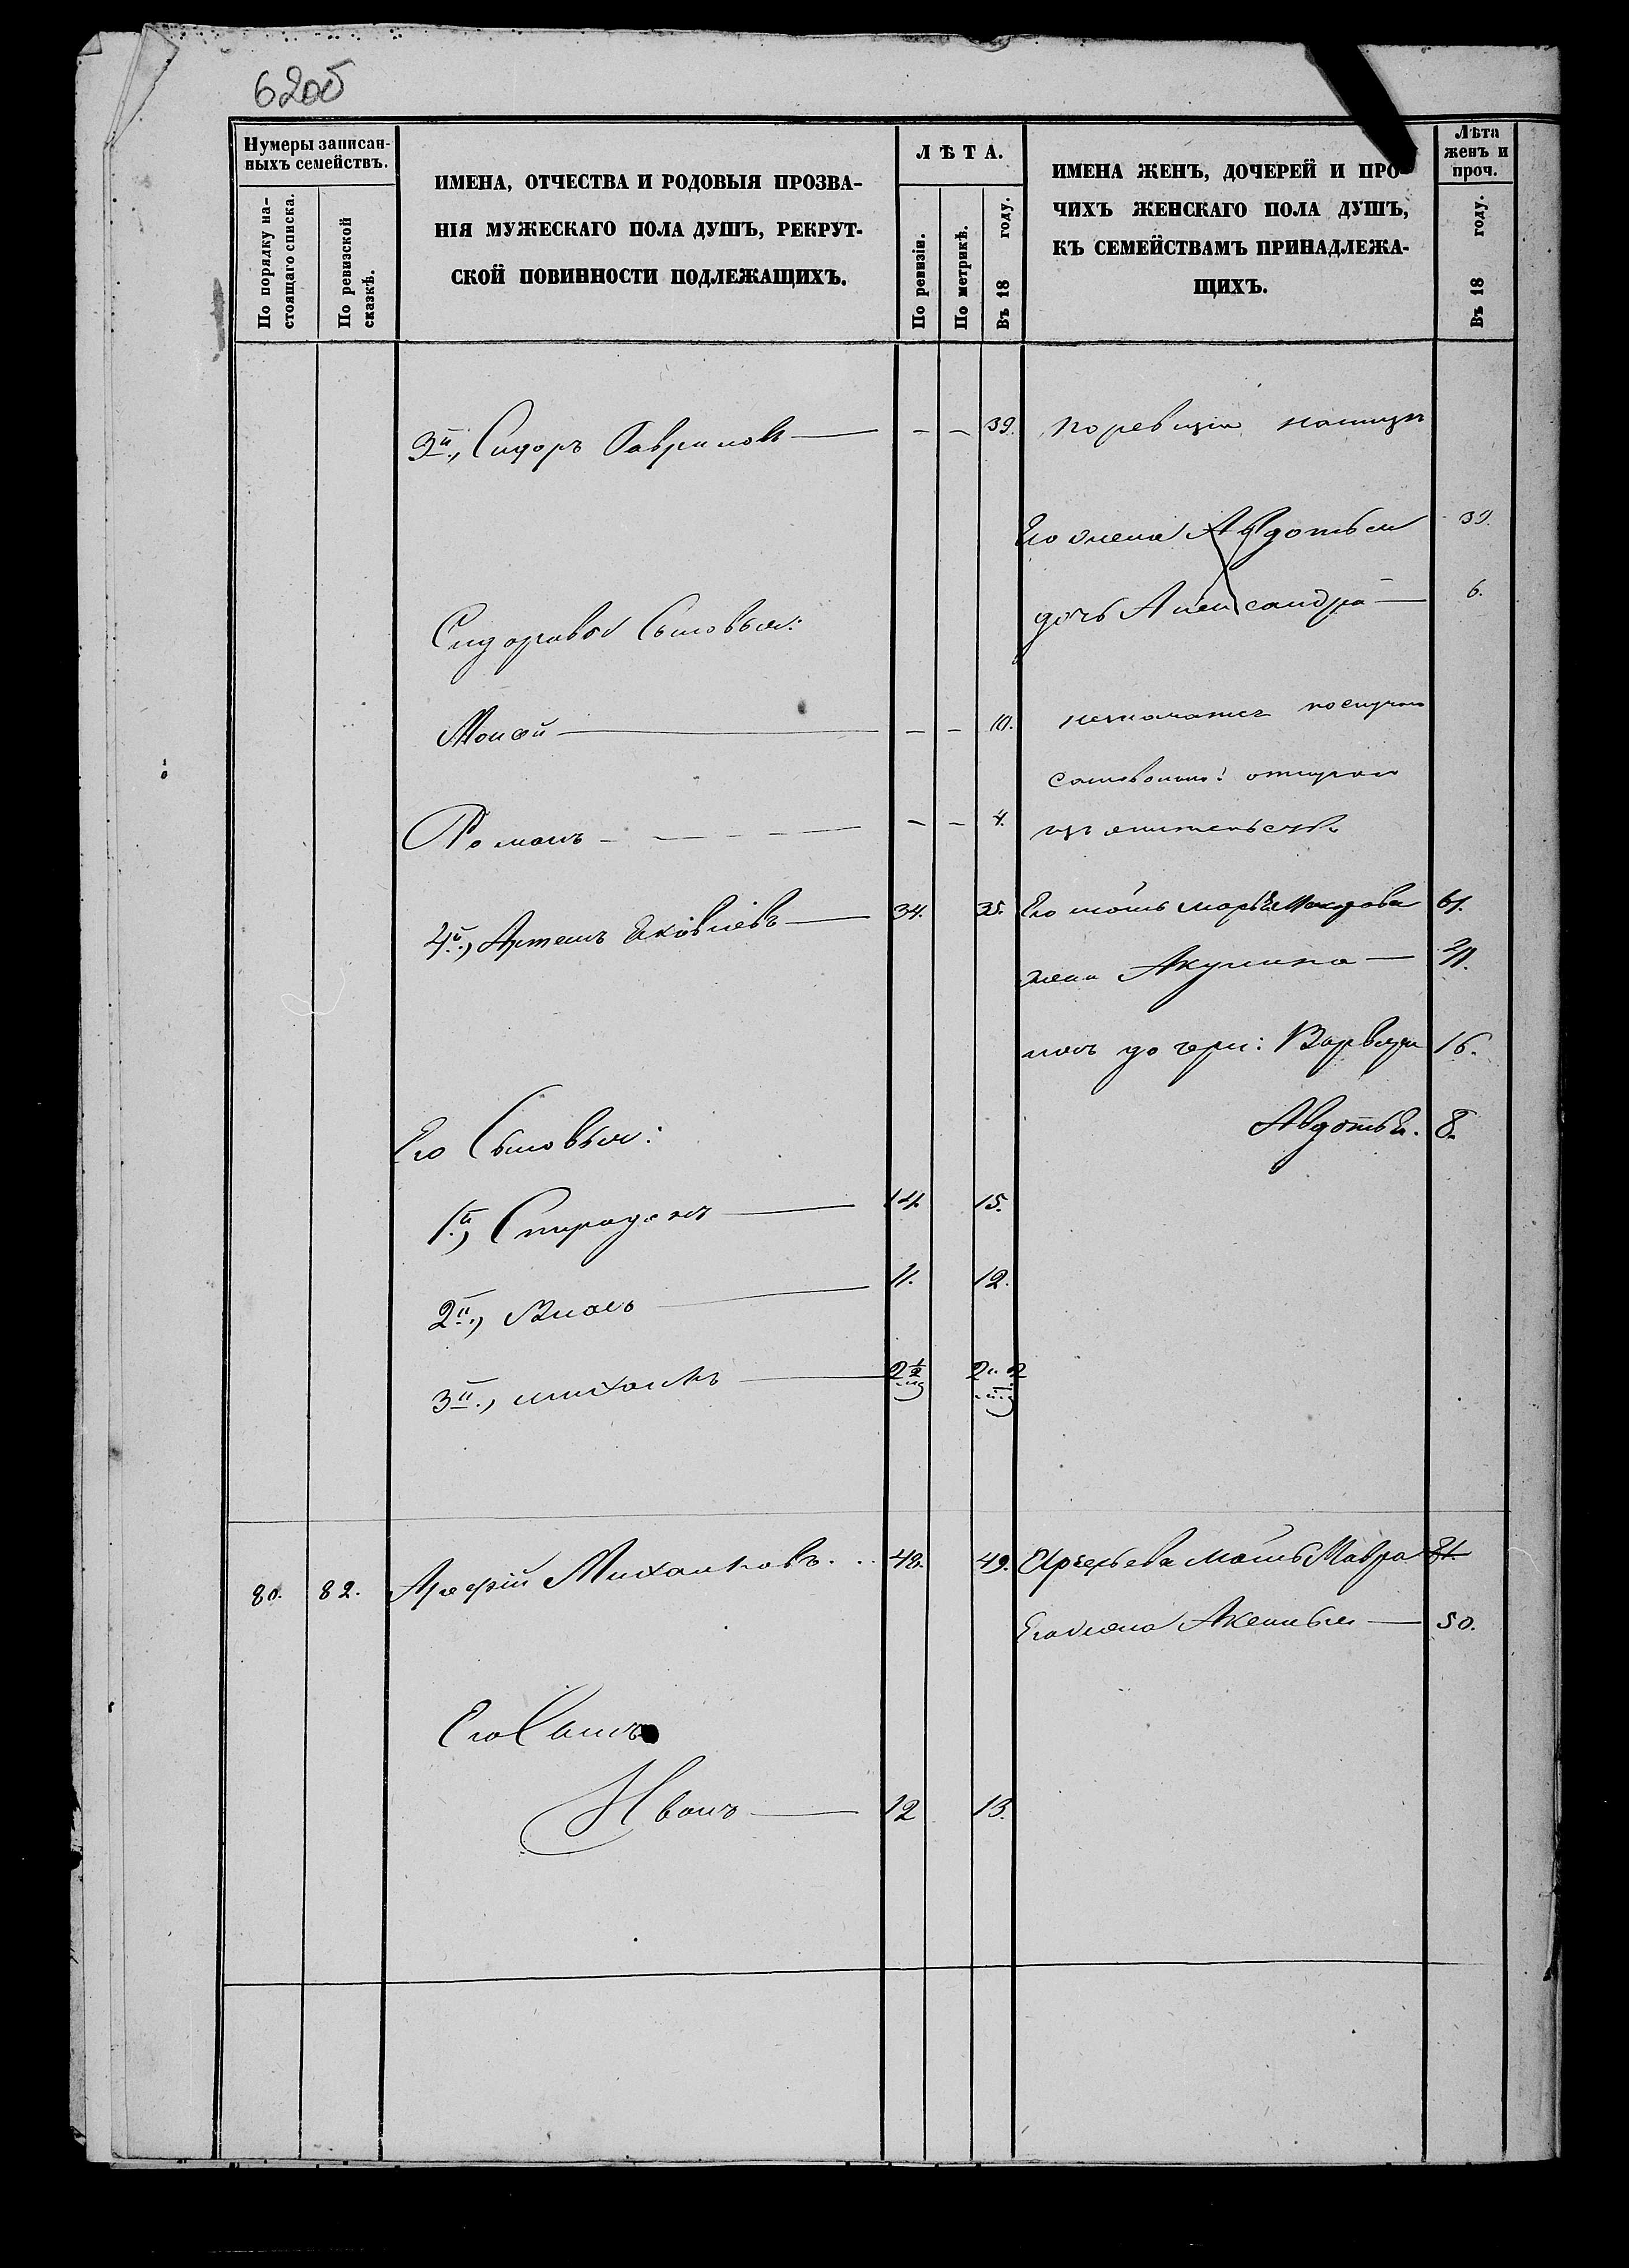 62об
Нумеры записан-
ныхъ семействъ.
По порядку на-
стоящаго списка.
По ревизской
сказкѣ.
ИМЕНА, ОТЧЕСТВА И РОДОВЫЯ ПРОЗВА-
НІЯ МУЖЕСКАГО ПОЛА ДУШЪ, РЕКРУТ-
СКОЙ ПОВИННОСТИ ПОДЛЕЖАЩИХЪ.
ЛѢТА.
По ревизіи.
По метрикѣ.
Въ 18 году.
ИМЕНА ЖЕНЪ, ДОЧЕРЕЙ И ПРО-
ЧИХЪ ЖЕНСКАГО ПОЛА ДУШЪ,
КЪ СЕМЕЙСТВАМЪ ПРИНАДЛЕЖА-
ЩИХЪ.
Лѣта
женъ и
проч.
Въ 18 году.
3й., Сидоръ Гавриловъ — - - 39. по ревизіи
Его жена Авдотья 39.
дочь Александра — 6.
Сидоровы Сыновья:
Моисей — - - 10.
Романъ - - - - 4.
4й., Артемъ Яковлевъ — 34. 35. Его мать Марья 61.
жена Акулина —
дочери: Варвара 16.
Авдотья. 8.
Его Сыновья:
1й., Спиридонъ — 14 15.
2й., Власъ — 11. 12.
3й., Михаилъ —
80. 82. Арефій Михайловъ . . . 48. 49. Арефьева мать Мавра
Его жена Аксинья — 50.
Его Сынъ
Иванъ — 12 13.